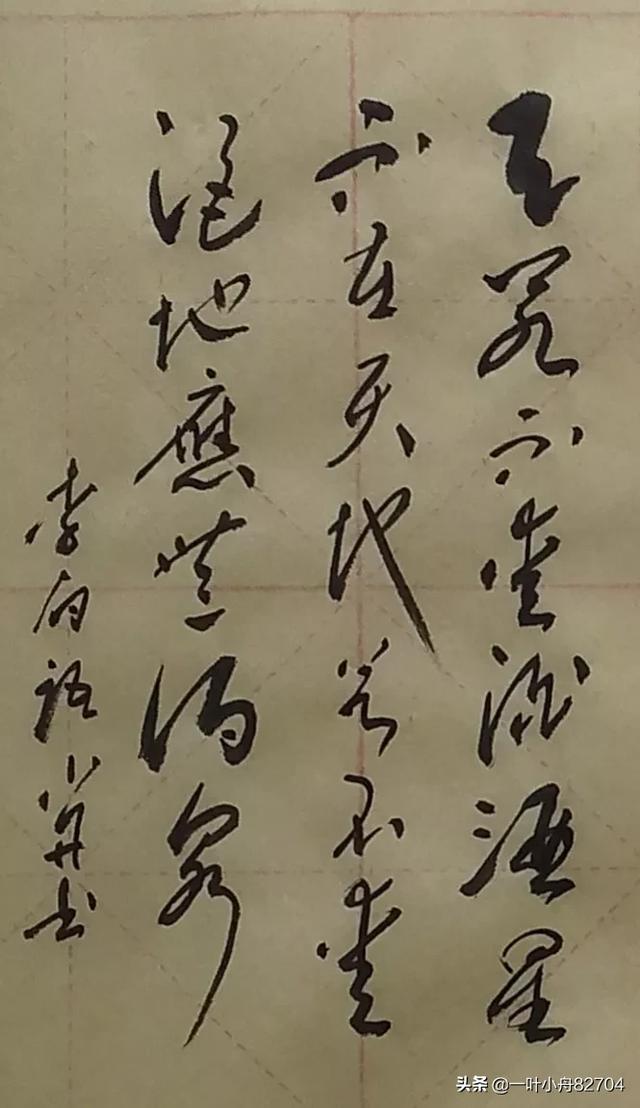 天若不愛酒酒星
不在天地若不愛
酒地應無酒泉
李白語小舟书
头条 @一叶小舟82704